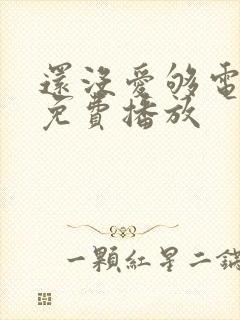 還沒愛够電
免費播放
一顆紅星二鍋